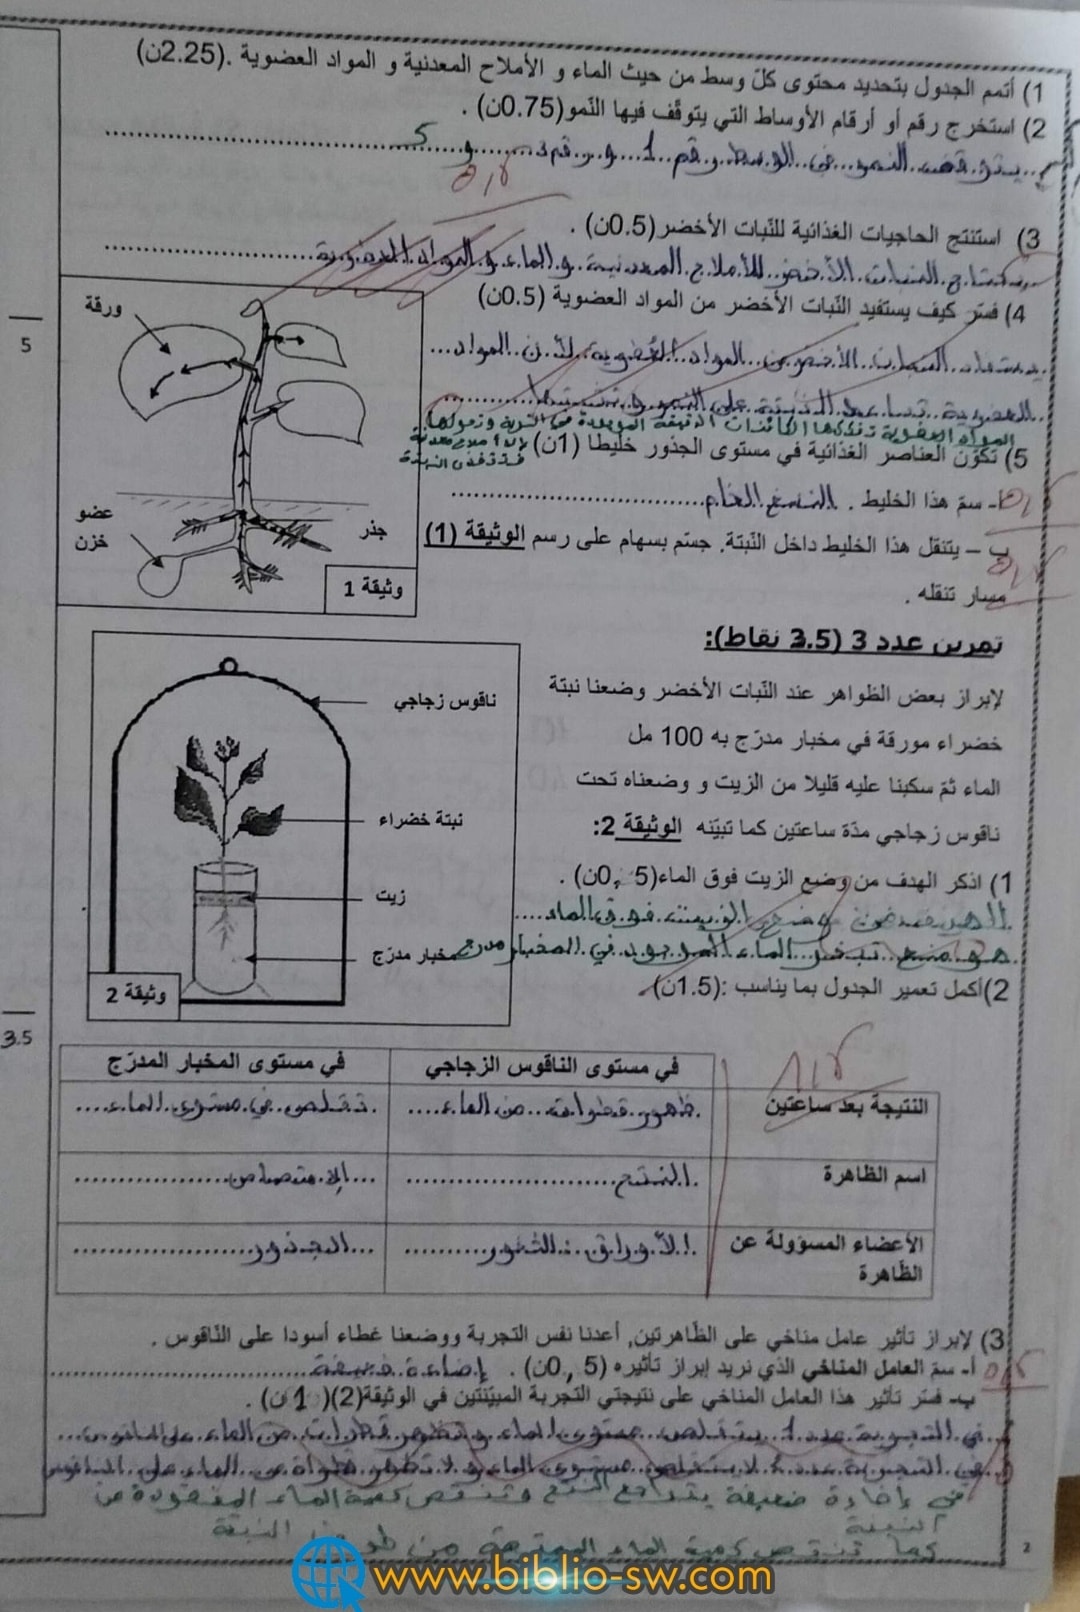 1) أتمم الجدول بتحديد محتوى كلّ وسط من حيث الماء و الأملاح المعدنية و المواد العضوية .(2.25ن)
2) استخرج رقم أو أرقام الأوساط التي يتوقّف فيها النّمو(0.75ن) .
يتوقف النمو في الوسط رقم 1 و رقم 3 و 5
3) استنتج الحاجيات الغذائية للنّبات الأخضر(0.5ن) .
يحتاج النبات الأخضر للأملاح المعدنية و الماء و المواد العضوية
4) فسّر كيف يستفيد النّبات الأخضر من المواد العضوية (0.5ن)
يستفاد النبات الأخضر من المواد العضوية لأن المواد
العضوية تساعد النبتة على النمو و
المواد العضوية تفككها الكائنات الدقيقة الموجودة في التربة وتحولها
إلى أملاح معدنية
فتتغذى النبتة
5) تكوّن العناصر الغذائية في مستوى الجذور خليطا (1ن)
أ- سمّ هذا الخليط . النسغ الخام
ب – يتنقل هذا الخليط داخل النّبتة. جسّم بسهام على رسم الوثيقة (1)
مسار تنقله .
ورقة
عضو
خزن
جذر
وثيقة 1
5
تمرين عدد 3 (3.5 نقاط):
لإبراز بعض الظواهر عند النّبات الأخضر وضعنا نبتة
خضراء مورقة في مخبار مدرّج به 100 مل
الماء ثمّ سكبنا عليه قليلا من الزيت و وضعناه تحت
ناقوس زجاجي مدّة ساعتين كما تبيّنه الوثيقة 2:
ناقوس زجاجي
نبتة خضراء
زيت
مخبار مدرّج
وثيقة 2
1) اذكر الهدف من وضع الزيت فوق الماء(0,5ن) .
الهدف من وضع الزيت فوق الماء
هو منع تبخر الماء الموجود في المخبار مدرج
2)أكمل تعمير الجدول بما يناسب :(1.5ن).
3.5
في مستوى الناقوس الزجاجي في مستوى المخبار المدرّج
النتيجة بعد ساعتين ظهور قطرات من الماء تقلص في مستوى الماء
اسم الظاهرة النتح الإمتصاص
الأعضاء المسؤولة عن الأوراق : الثغور الجذور
الظّاهرة
3) لإبراز تأثير عامل مناخي على الظّاهرتين, أعدنا نفس التجربة ووضعنا غطاء أسودا على النّاقوس .
أ- سمّ العامل المناخي الذي نريد إبراز تأثيره (0,5ن) . إضاءة ضعيفة
ب- فسّر تأثير هذا العامل المناخي على نتيجتي التجربة المبيّنتين في الوثيقة(2)(1ن) .
في التجربة عدد 1 يتقلص مستوى الماء و تظهر قطرات من الماء على الناقوس
في التجربة عدد 2 لا يتقلص مستوى الماء و لا تظهر قطراة من الماء على الناقوس
في إضاءة ضعيفة يتراجع النتح وتنقص كمية الماء المفقودة من
النبتة
كما تنقص كمية الماء الممتصة من طرف النبتة
2
www.biblio-sw.com